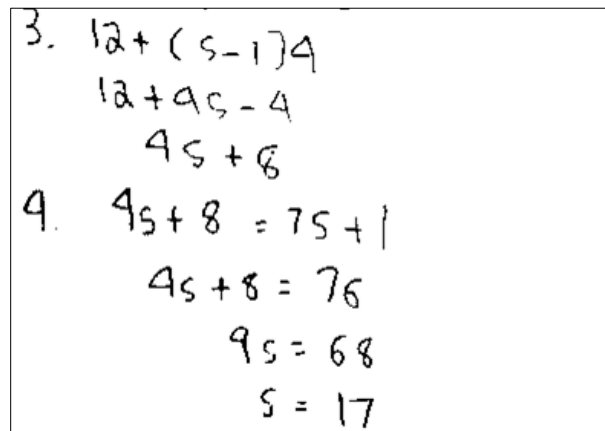 3. 12+(s-1)4
12+4s-4
4s+8
4. 4s+8=75+1
4s+8=76
4s=68
s=17